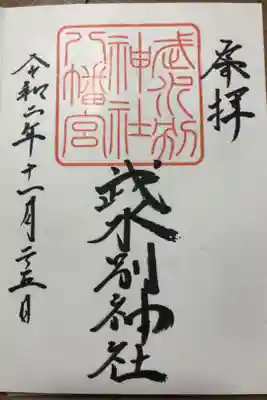 奉拝
武水別
神社
八幡宮
武水別神社
令和二年十一月二五日